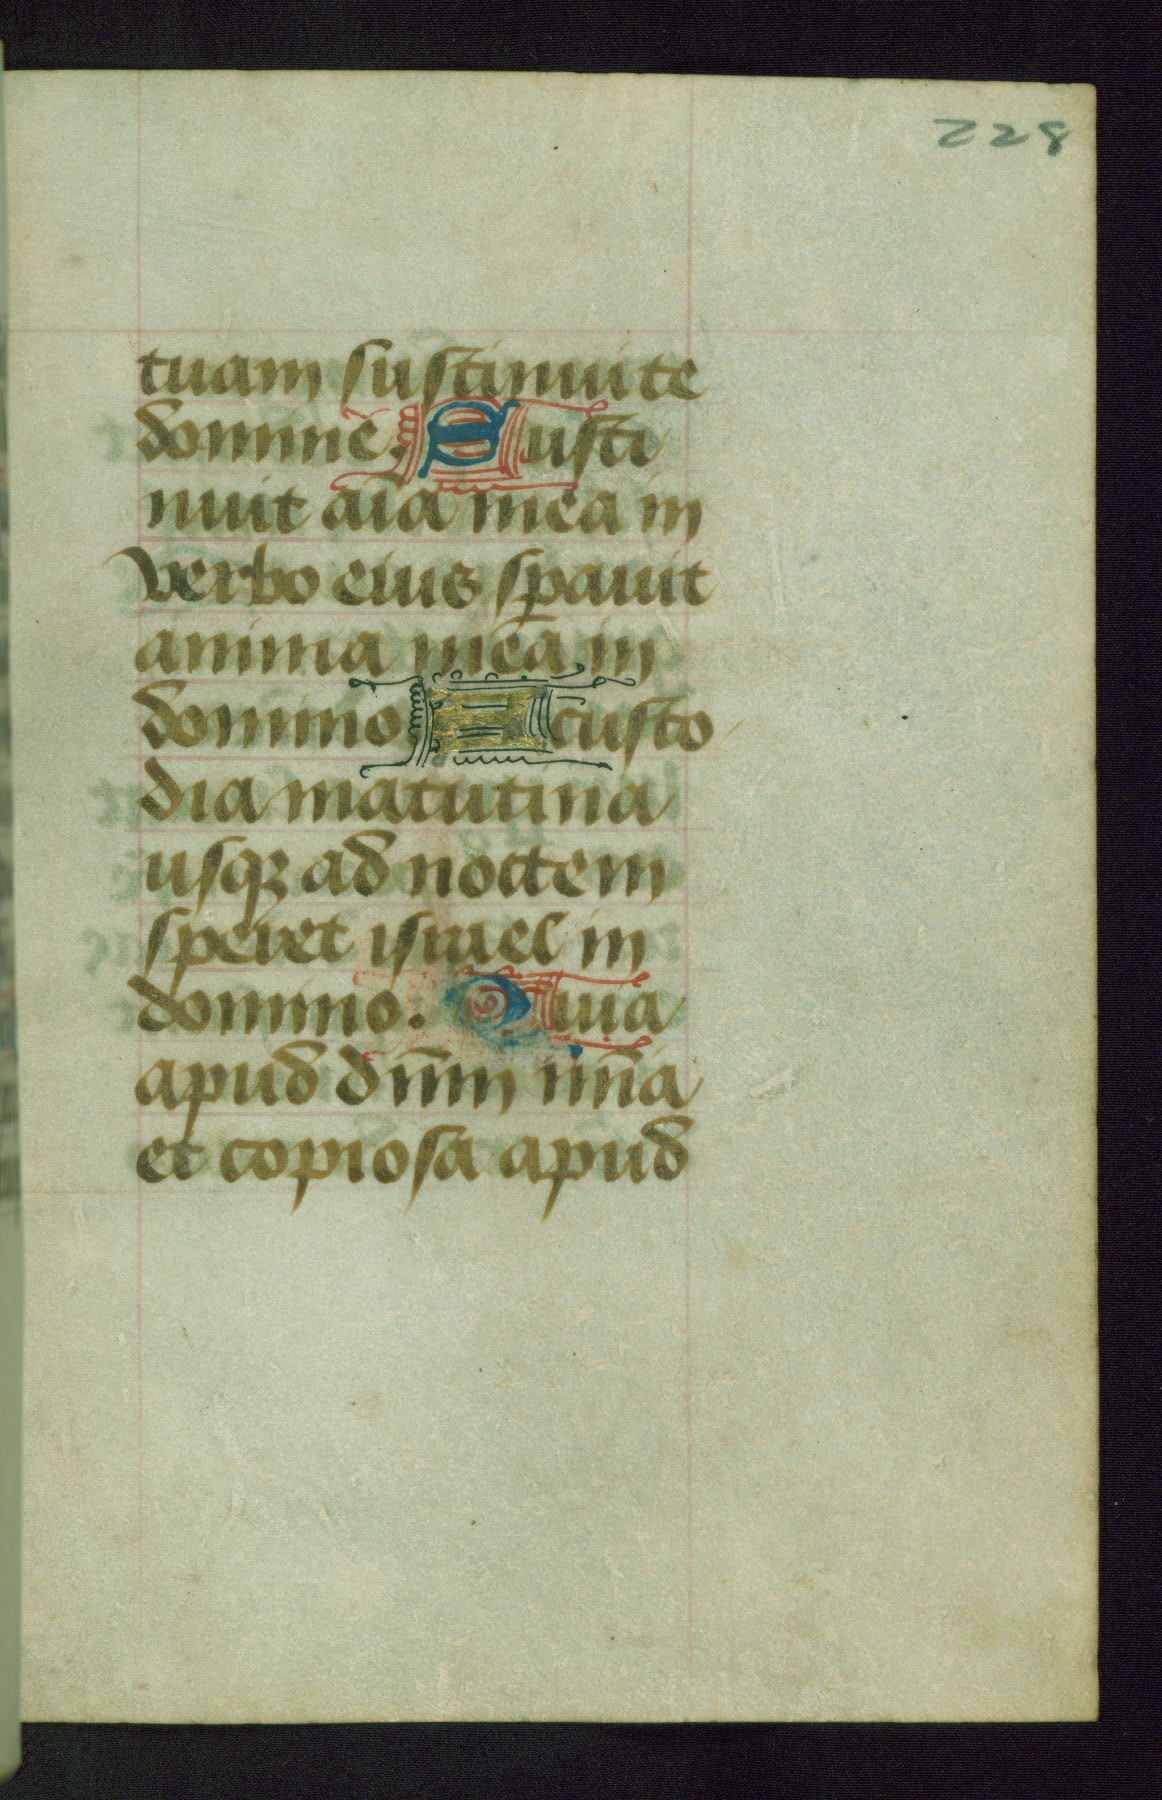 228
tuam sustinui te
domine. Susti
nuit aīa mea in
verbo eius spauit
anima mea in
domino A custo
dia matutina
usqꝫ ad noctem
speret israel in
domino. Quia
apud dn̄m mīa
et copiosa apud